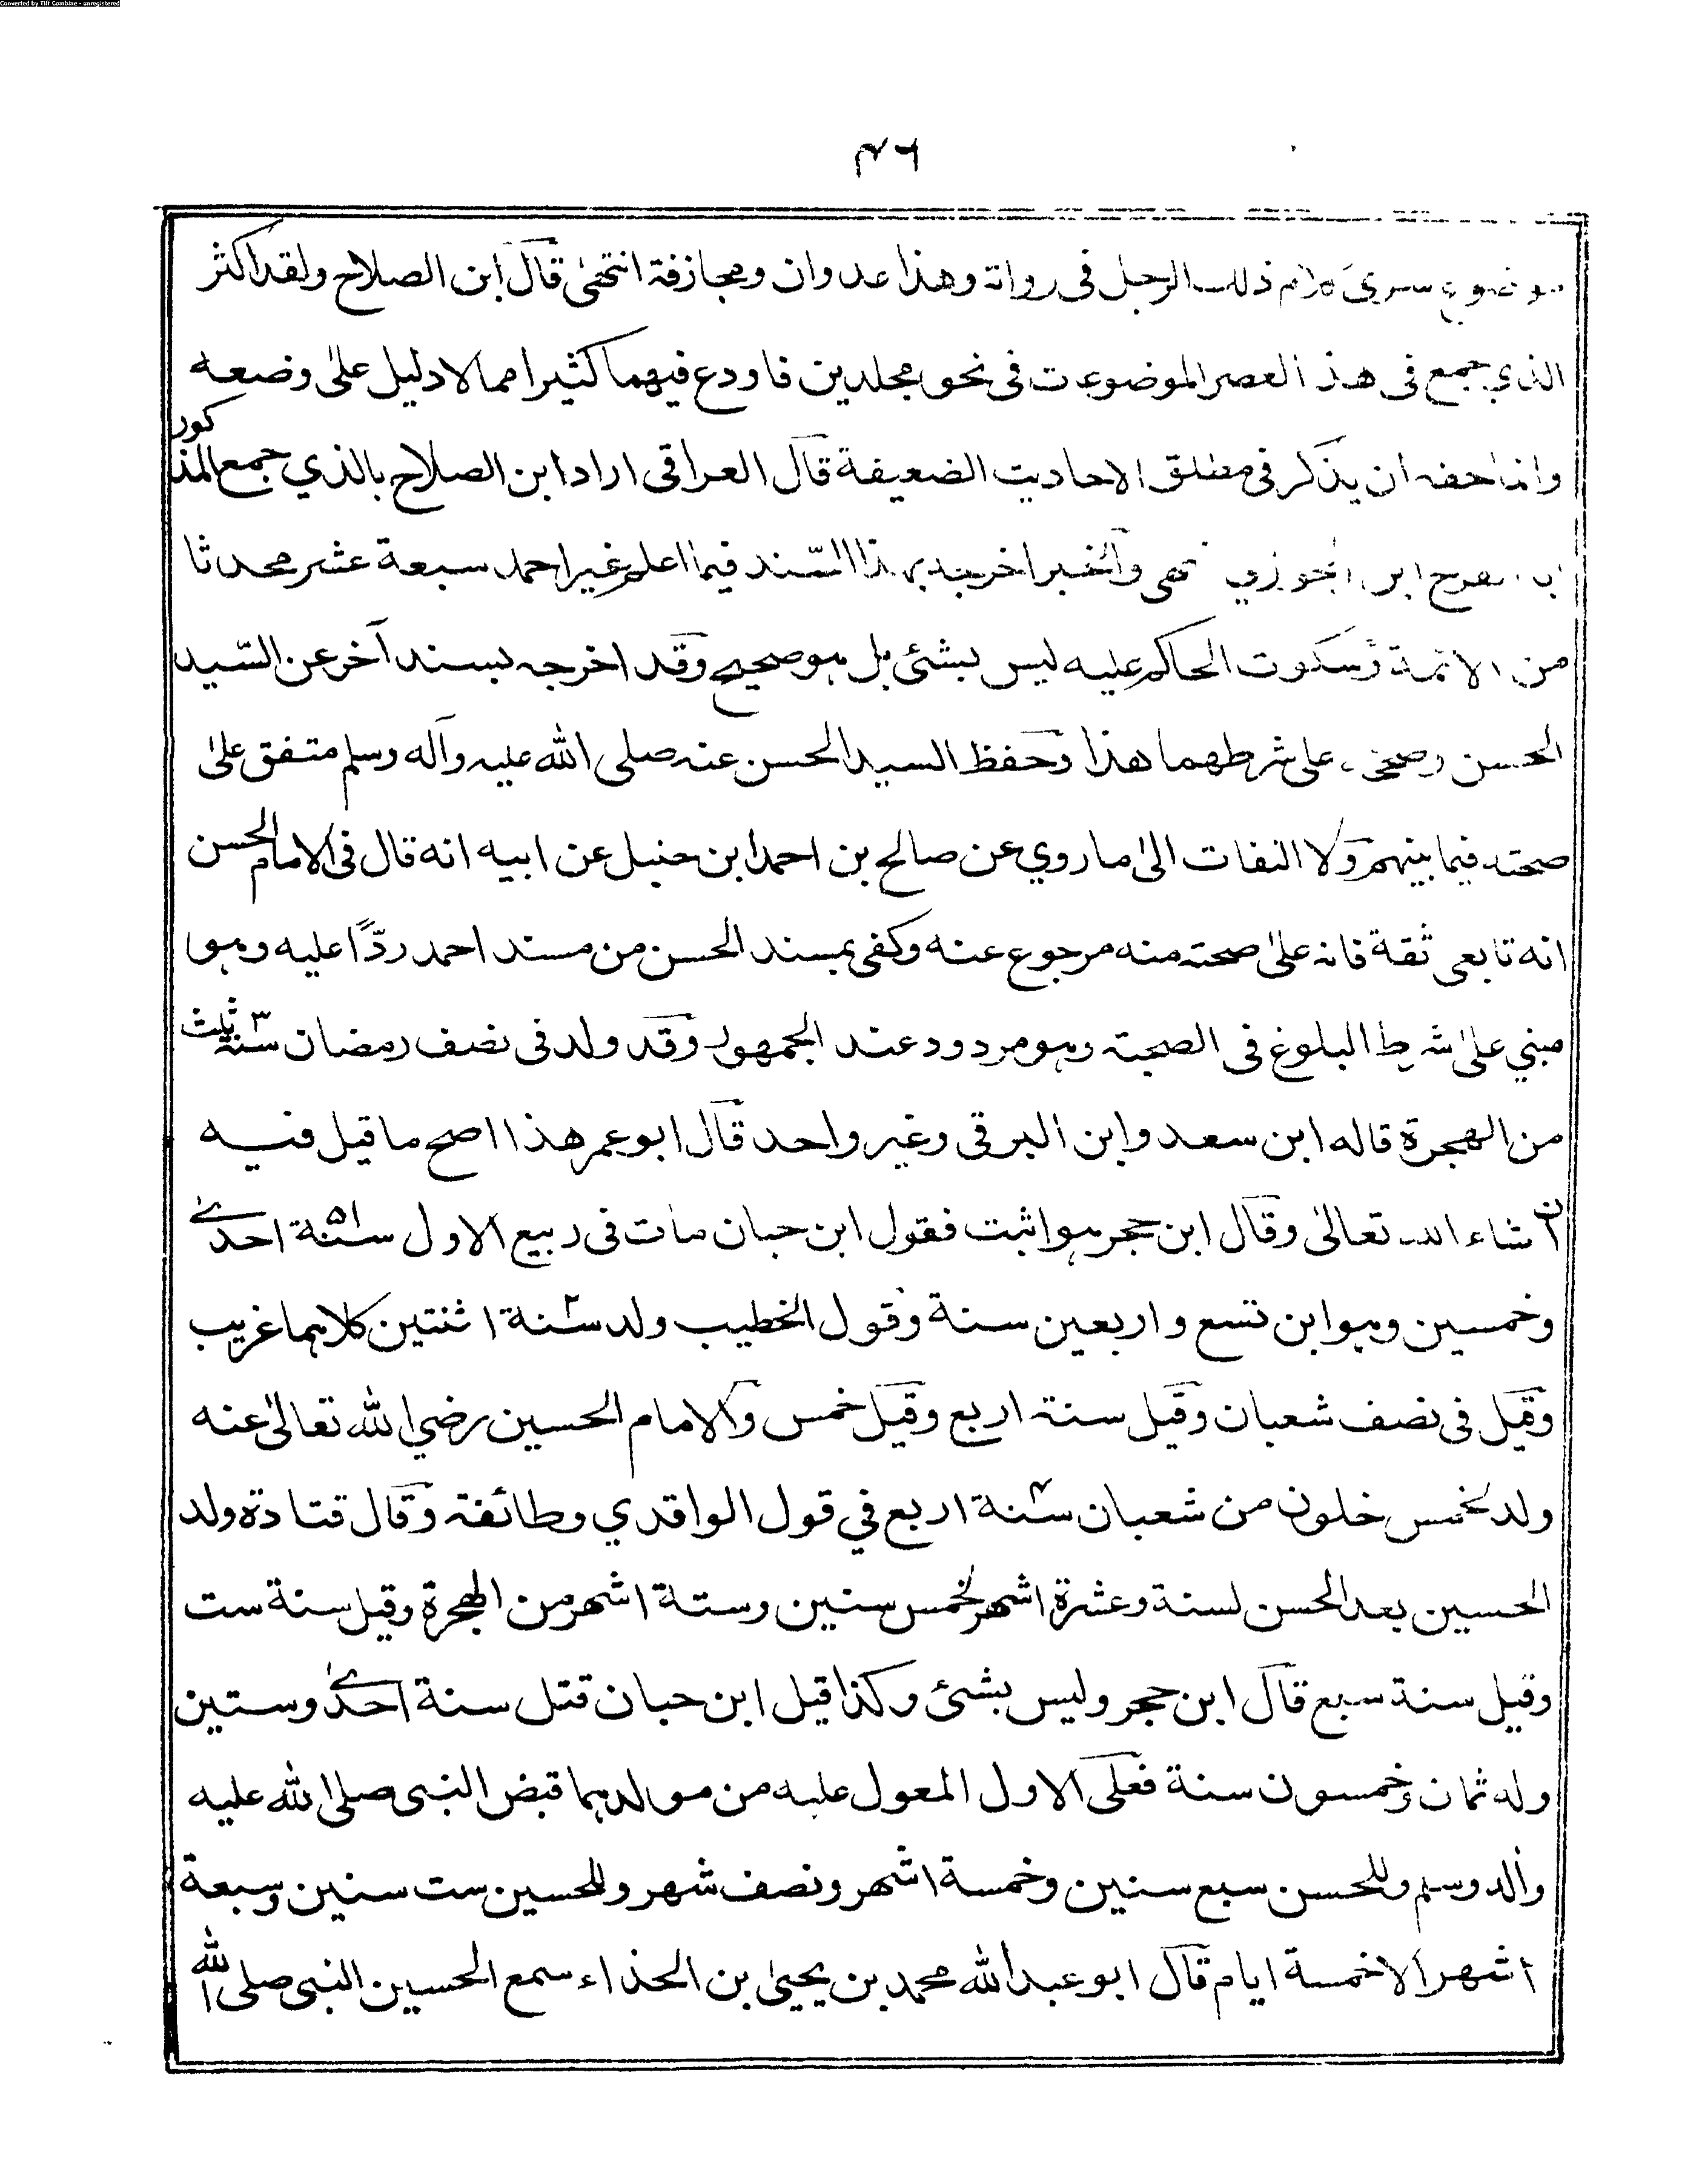 Converted by Tiff Combine - unregistered
۴۶
موضوع سوى كلام ذلك الرجل فى رواته وهذا عدوان ومجازفة انتهىٰ قال ابن الصلاح ولقد اكثر
الذي جمع فى هذا العصر الموضوعات فى نحو مجلدين فاودع فيهما كثيرا مما لا دليل علىٰ وضعه
وانما حقه ان يذكر فى مطلق الاحاديث الضعيفة قال العراقى اراد ابن الصلاح بالذي جمع المذكور
ابا الفرج ابن الجوزي انتهى والخبر اخرجه بهذا السّند فيما اعلم غير احمد سبعة عشر محدثا
من الائمة وسكوت الحاكم عليه ليس بشئ بل هو صحيح وقد اخرجه بسند آخر عن السّيد
الحسن وصححه على شرطهما هذا وحفظ السيد الحسن عنه صلى الله عليه وآله وسلم متفق علىٰ
صحته فيما بينهم ولا التفات الىٰ ما روي عن صالح بن احمد ابن حنبل عن ابيه انه قال فى الامام الحسن
انه تابعى ثقة فانه علىٰ صحته منه مرجوع عنه وكفى بمسند الحسن من مسند احمد ردًّا عليه وهو
مبني علىٰ شرط البلوغ فى الصحبة وهو مردود عند الجمهور وقد ولد فى نصف رمضان سنة ۳ ثلث
من الهجرة قاله ابن سعد وابن البرقى وغير واحد قال ابو عمر هذا اصح ما قيل فيه
ان شاء الله تعالىٰ وقال ابن حجر هو اثبت فقول ابن حبان مات فى ربيع الاول سنة ۵۱ احدىٰ
وخمسين وهو ابن تسع و اربعين سنة وقول الخطيب ولد سنة ۲ اثنتين كلاهما غريب
وقيل فى نصف شعبان وقيل سنة اربع وقيل خمس والامام الحسين رضي الله تعالىٰ عنه
ولد لخمس خلون من شعبان سنة ۴ اربع في قول الواقدي وطائفة وقال قتادة ولد
الحسين بعد الحسن لسنة وعشرة اشهر لخمس سنين وستة اشهر من الهجرة وقيل سنة ست
وقيل سنة سبع قال ابن حجر وليس بشئ وكذا قيل ابن حبان قتل سنة احدىٰ وستين
وله ثمان وخمسون سنة فعلى الاول المعول عليه من موالدهما قبض النبى صلى الله عليه
واله وسلم وللحسن سبع سنين وخمسة اشهر ونصف شهر وللحسين ست سنين وسبعة
اشهر الا خمسة ايام قال ابو عبد الله محمد بن يحيىٰ بن الحذاء سمع الحسين النبى صلى الله